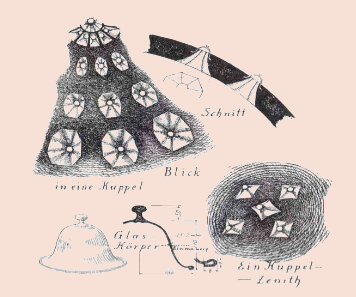 Schnitt
Blick
in eine Kuppel
Glas
Körper
Ein Kuppel-
- Zenith